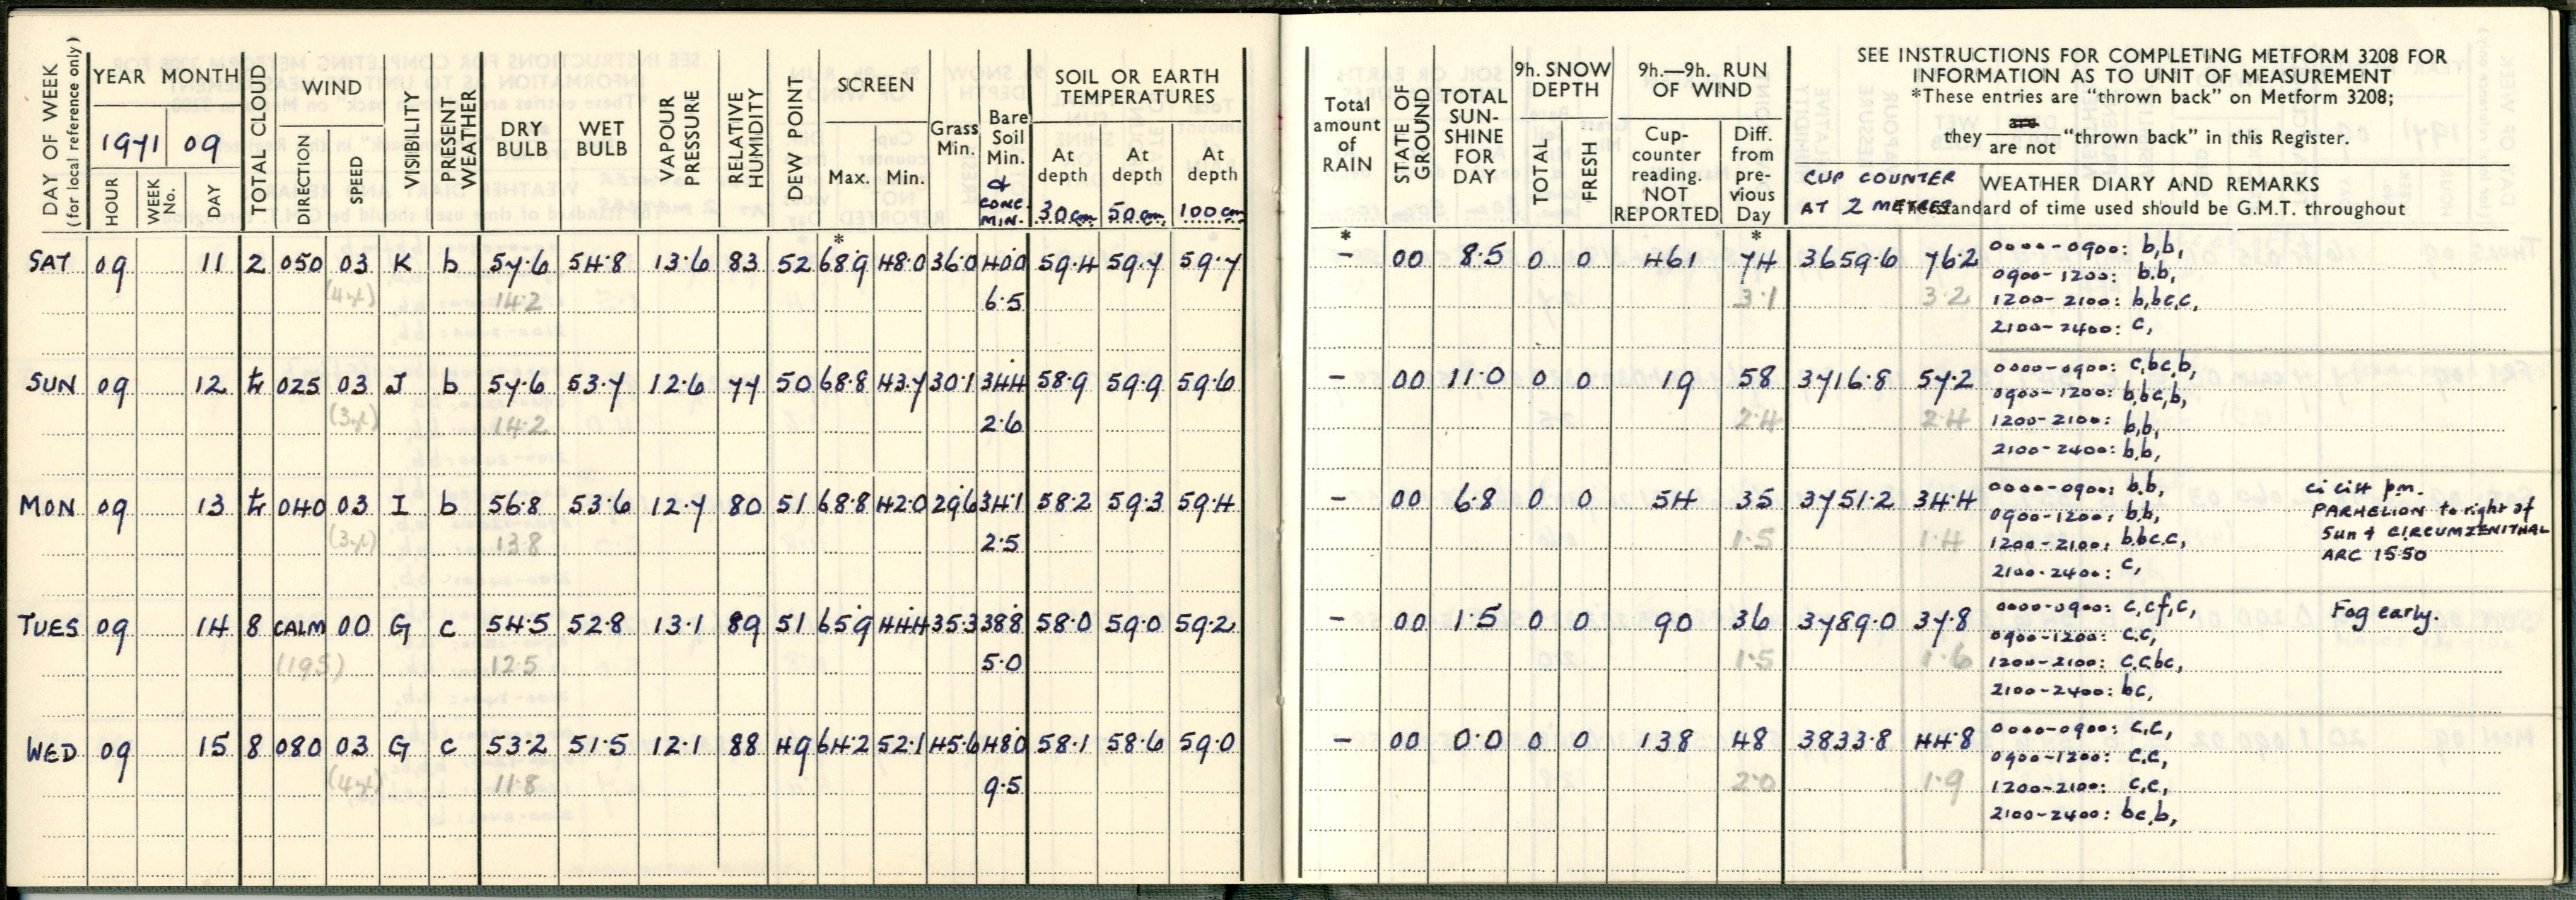 DAY OF WEEK
(for local reference only)
YEAR MONTH
1971 09
HOUR
WEEK No.
DAY
TOTAL CLOUD
WIND
DIRECTION
SPEED
VISIBILITY
PRESENT WEATHER
DRY BULB
WET BULB
VAPOUR PRESSURE
RELATIVE HUMIDITY
DEW POINT
SCREEN
Max. Min.
Grass Min.
Bare Soil Min.
& CONC. MIN.
SOIL OR EARTH TEMPERATURES
At depth 30 cm
At depth 50 cm
At depth 100 cm
Total amount of RAIN
STATE OF GROUND
TOTAL SUN-SHINE FOR DAY
9h. SNOW DEPTH
TOTAL
FRESH
9h.—9h. RUN OF WIND
Cup-counter reading. NOT REPORTED
Diff. from pre-vious Day
SEE INSTRUCTIONS FOR COMPLETING METFORM 3208 FOR
INFORMATION AS TO UNIT OF MEASUREMENT
*These entries are "thrown back" on Metform 3208;
they are / are not "thrown back" in this Register.
CUP COUNTER
AT 2 METRES
WEATHER DIARY AND REMARKS
The standard of time used should be G.M.T. throughout
* * *
SAT 09 11 2 050 03 K b 57.6 54.8 13.6 83 52 68.9 48.0 36.0 40.0 59.4 59.7 59.7 - 00 8.5 0 0 461 74 3659.6 76.2 0000-0900: b,b,
(4.7) 14.2 6.5 3.1 3.2 0900-1200: b.b,
1200-2100: b,bc,c,
2100-2400: c,
SUN 09 12 tr 025 03 J b 57.6 53.7 12.6 77 50 68.8 43.7 30.1 34.4 58.9 59.9 59.6 - 00 11.0 0 0 19 58 3716.8 57.2 0000-0900: c,bc,b,
0900-1200: b,bc,b,
(3.7) 14.2 2.6 2.4 2.4 1200-2100: b,b,
2100-2400: b,b,
MON 09 13 tr 040 03 I b 56.8 53.6 12.7 80 51 68.8 42.0 29.6 34.1 58.2 59.3 59.4 - 00 6.8 0 0 54 35 3751.2 34.4 0000-0900: b.b, ci cist p.m.
0900-1200: b.b, PARHELION to right of
(3.7) 13.8 2.5 1.5 1.4 1200-2100: b,bc.c, Sun & CIRCUMZENITHAL
2100-2400: c, ARC 1550
TUES 09 14 8 CALM 00 G c 54.5 52.8 13.1 89 51 65.9 44.4 35.3 38.8 58.0 59.0 59.2 - 00 1.5 0 0 90 36 3789.0 37.8 0000-0900: c,cf,c, Fog early.
0900-1200: c.c,
(195) 12.5 5.0 1.5 1.6 1200-2100: c.c,bc,
2100-2400: bc,
WED 09 15 8 080 03 G c 53.2 51.5 12.1 88 49 64.2 52.1 45.6 48.0 58.1 58.6 59.0 - 00 0.0 0 0 138 48 3833.8 44.8 0000-0900: c,c,
0900-1200: c.c,
(4.7) 11.8 9.5 2.0 1.9 1200-2100: c,c,
2100-2400: bc,b,